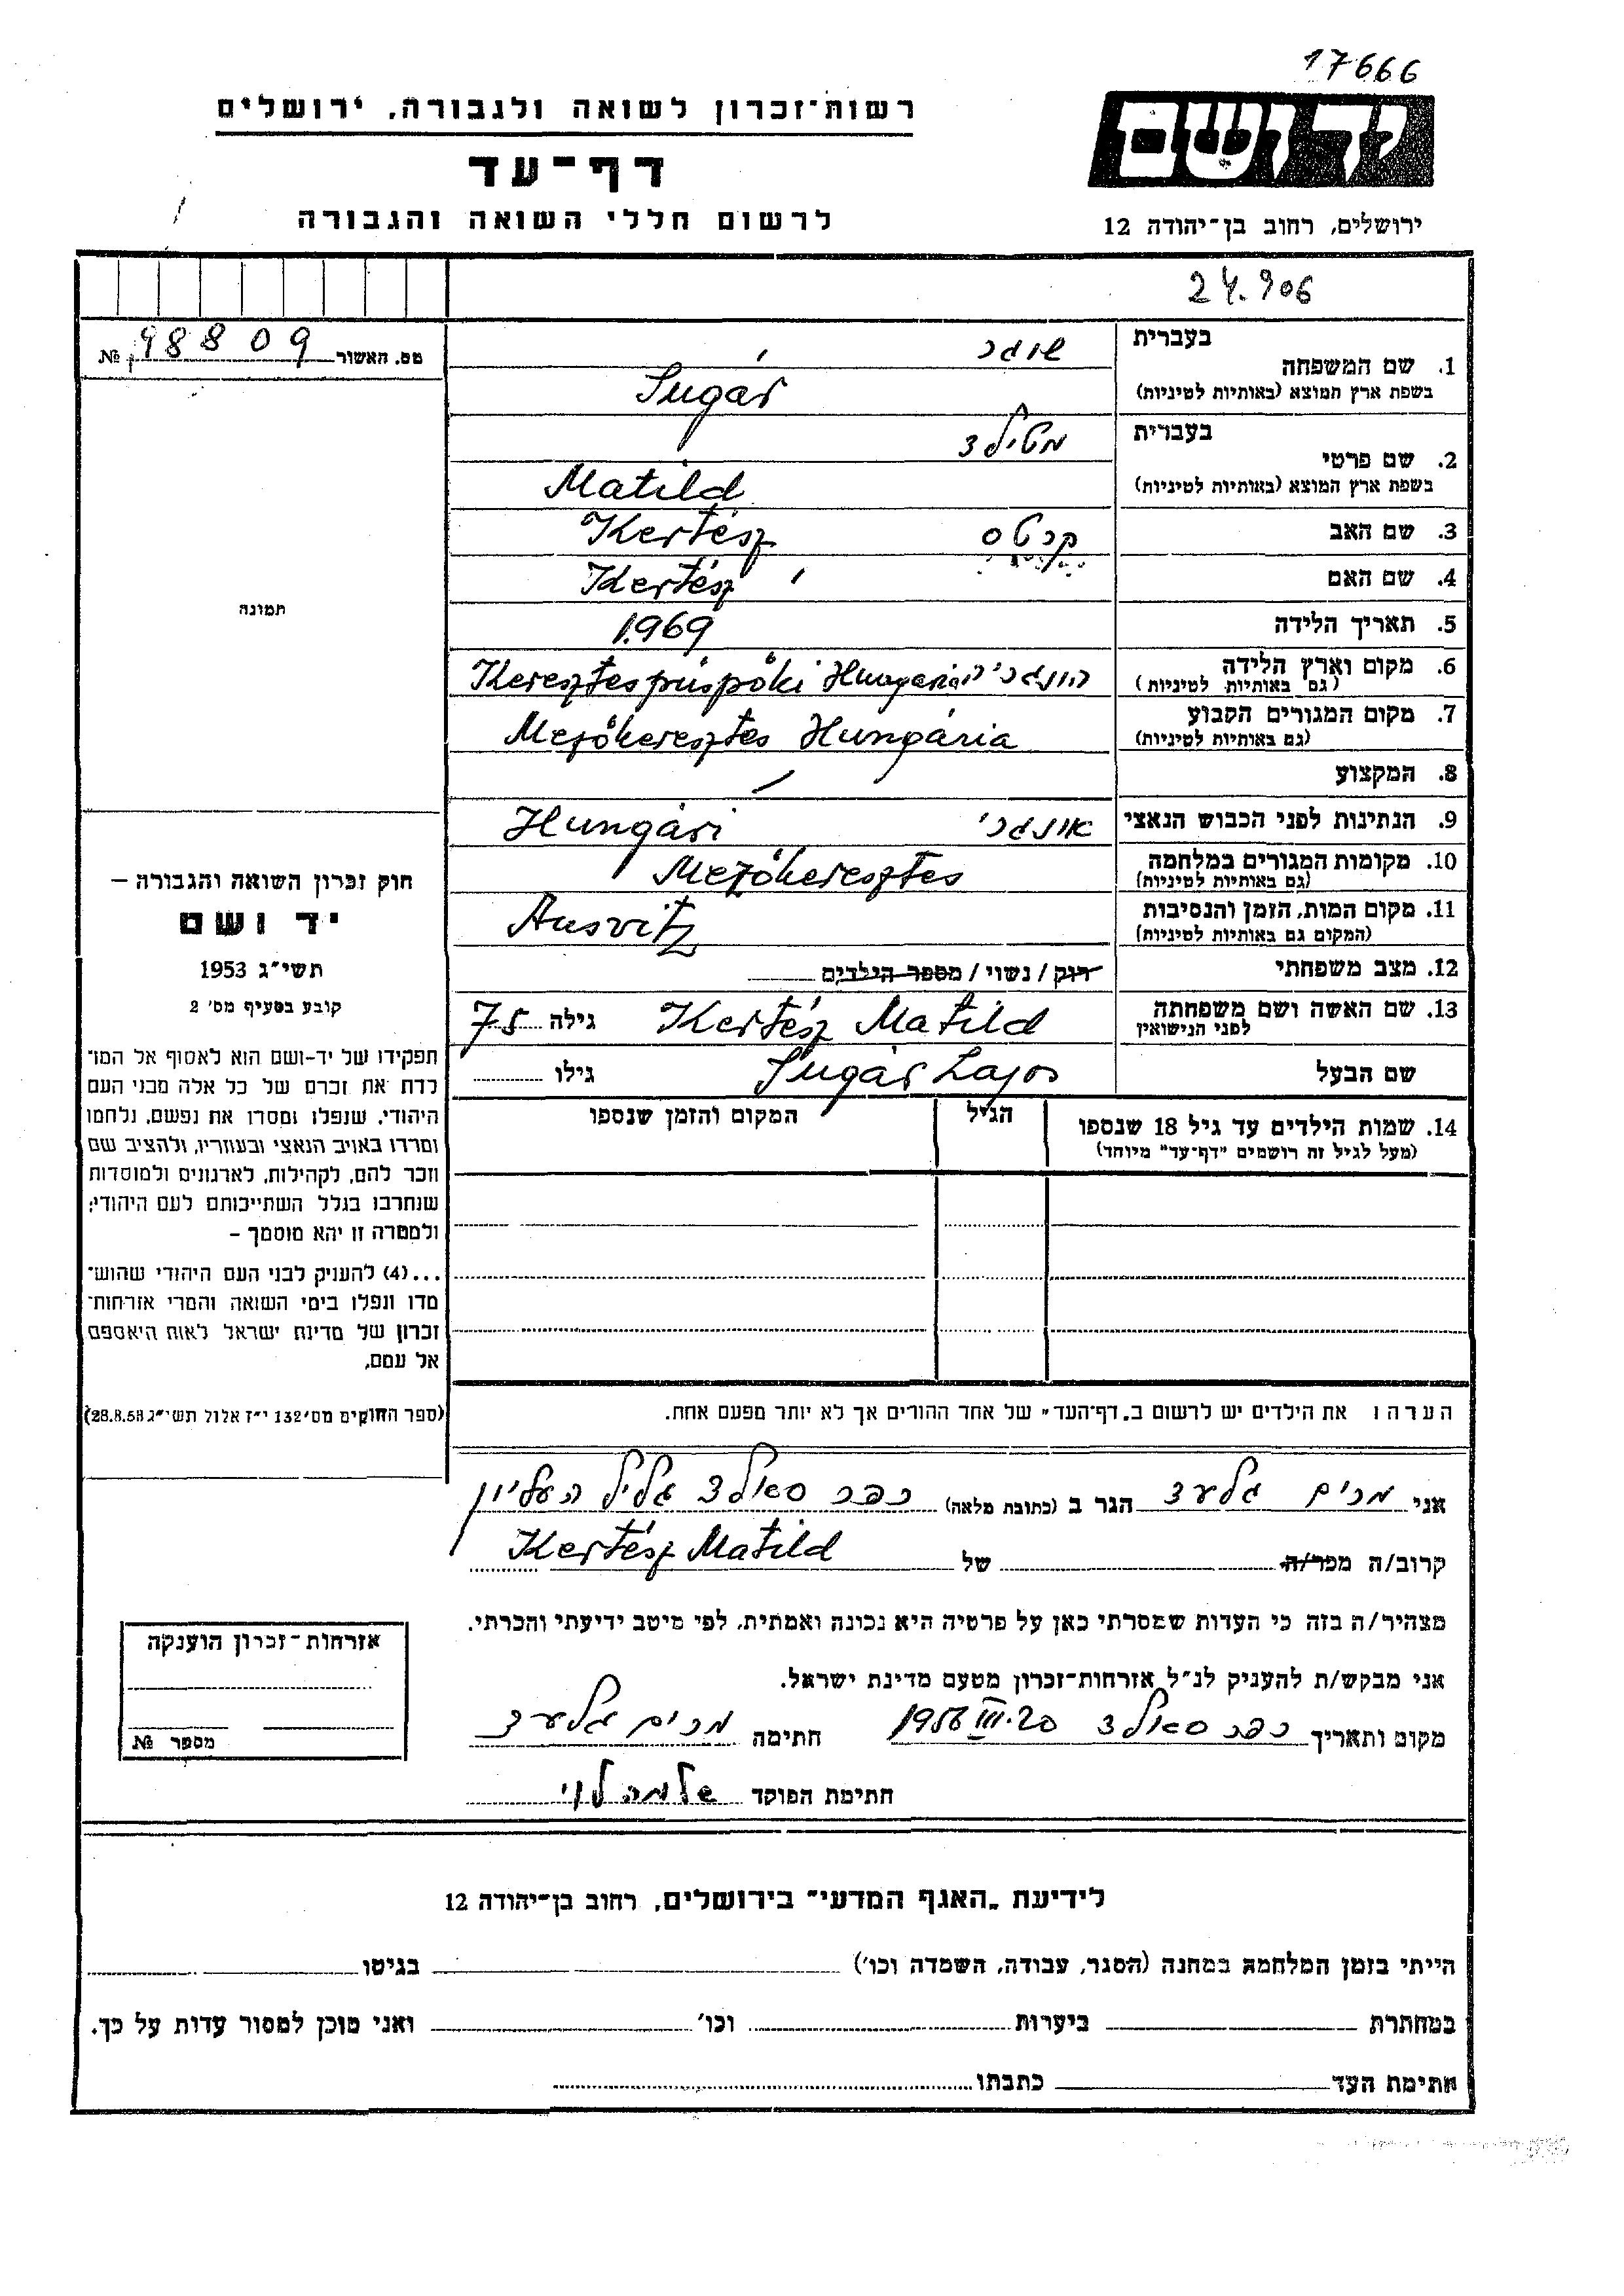 17666
רשות-זכרון לשואה ולגבורה, ירושלים
יד ושם
דף-עד
לרשום חללי השואה והגבורה
ירושלים, רחוב בן-יהודה 12
24.906
מס. האשור 98809 №
1. שם המשפחה
בעברית שוגר
בשפת ארץ המוצא (באותיות לטיניות) Sugár
2. שם פרטי
בעברית מטילד
בשפת ארץ המוצא (באותיות לטיניות) Matild
3. שם האב קרטס Kertész
4. שם האם Kertész
5. תאריך הלידה 1.969
6. מקום וארץ הלידה Keresztespüspöki Hungária
(גם באותיות לטיניות)
7. מקום המגורים הקבוע Mezőkeresztes Hungária
(גם באותיות לטיניות)
8. המקצוע
9. הנתינות לפני הכבוש הנאצי אונגרי Hungári
10. מקומות המגורים במלחמה Mezőkeresztes
(גם באותיות לטיניות)
11. מקום המות, הזמן והנסיבות Ausvitz
(המקום גם באותיות לטיניות)
12. מצב משפחתי רוק / נשוי / מספר הילדים
13. שם האשה ושם משפחתה Kertész Matild גילה 75
לפני הנישואין
שם הבעל Sugár Lajos גילו
14. שמות הילדים עד גיל 18 שנספו הגיל המקום והזמן שנספו
(מעל לגיל זה רושמים "דף-עד" מיוחד)
תמונה
חוק זכרון השואה והגבורה –
יד ושם
תשי"ג 1953
קובע בסעיף מס' 2
תפקידו של יד-ושם הוא לאסוף אל המו־
לדת את זכרם של כל אלה מבני העם
היהודי, שנפלו ומסרו את נפשם, נלחמו
ומרדו באויב הנאצי ובעוזריו, ולהציב שם
וזכר להם, לקהילות, לארגונים ולמוסדות
שנחרבו בגלל השתייכותם לעם היהודי;
ולמטרה זו יהא מוסמך –
...(4) להעניק לבני העם היהודי שהוש־
מדו ונפלו בימי השואה והמרי אזרחות־
זכרון של מדינת ישראל לאות היאספם
אל עמם.
(ספר החוקים מס' 132 י"ז אלול תשי"ג 28.8.53)
הערה: את הילדים יש לרשום ב„דף-העד" של אחד ההורים אך לא יותר מפעם אחת.
אני מרים גלעד הגר ב (כתובת מלאה) כפר סאולד גליל העליון
קרוב/ה מכר/ה של Kertész Matild
מצהיר/ה בזה כי העדות שמסרתי כאן על פרטיה היא נכונה ואמתית, לפי מיטב ידיעתי והכרתי.
אני מבקש/ת להעניק לנ"ל אזרחות-זכרון מטעם מדינת ישראל.
מקום ותאריך כפר סאולד 20.III 1956 חתימה מרים גלעד
חתימת הפוקד שלמה לוי
אזרחות-זכרון הוענקה
מספר №
לידיעת „האגף המדעי" בירושלים, רחוב בן-יהודה 12
הייתי בזמן המלחמה במחנה (הסגר, עבודה, השמדה וכו') בגיטו
במחתרת ביערות וכו' ואני מוכן למסור עדות על כך.
חתימת העד כתבתו